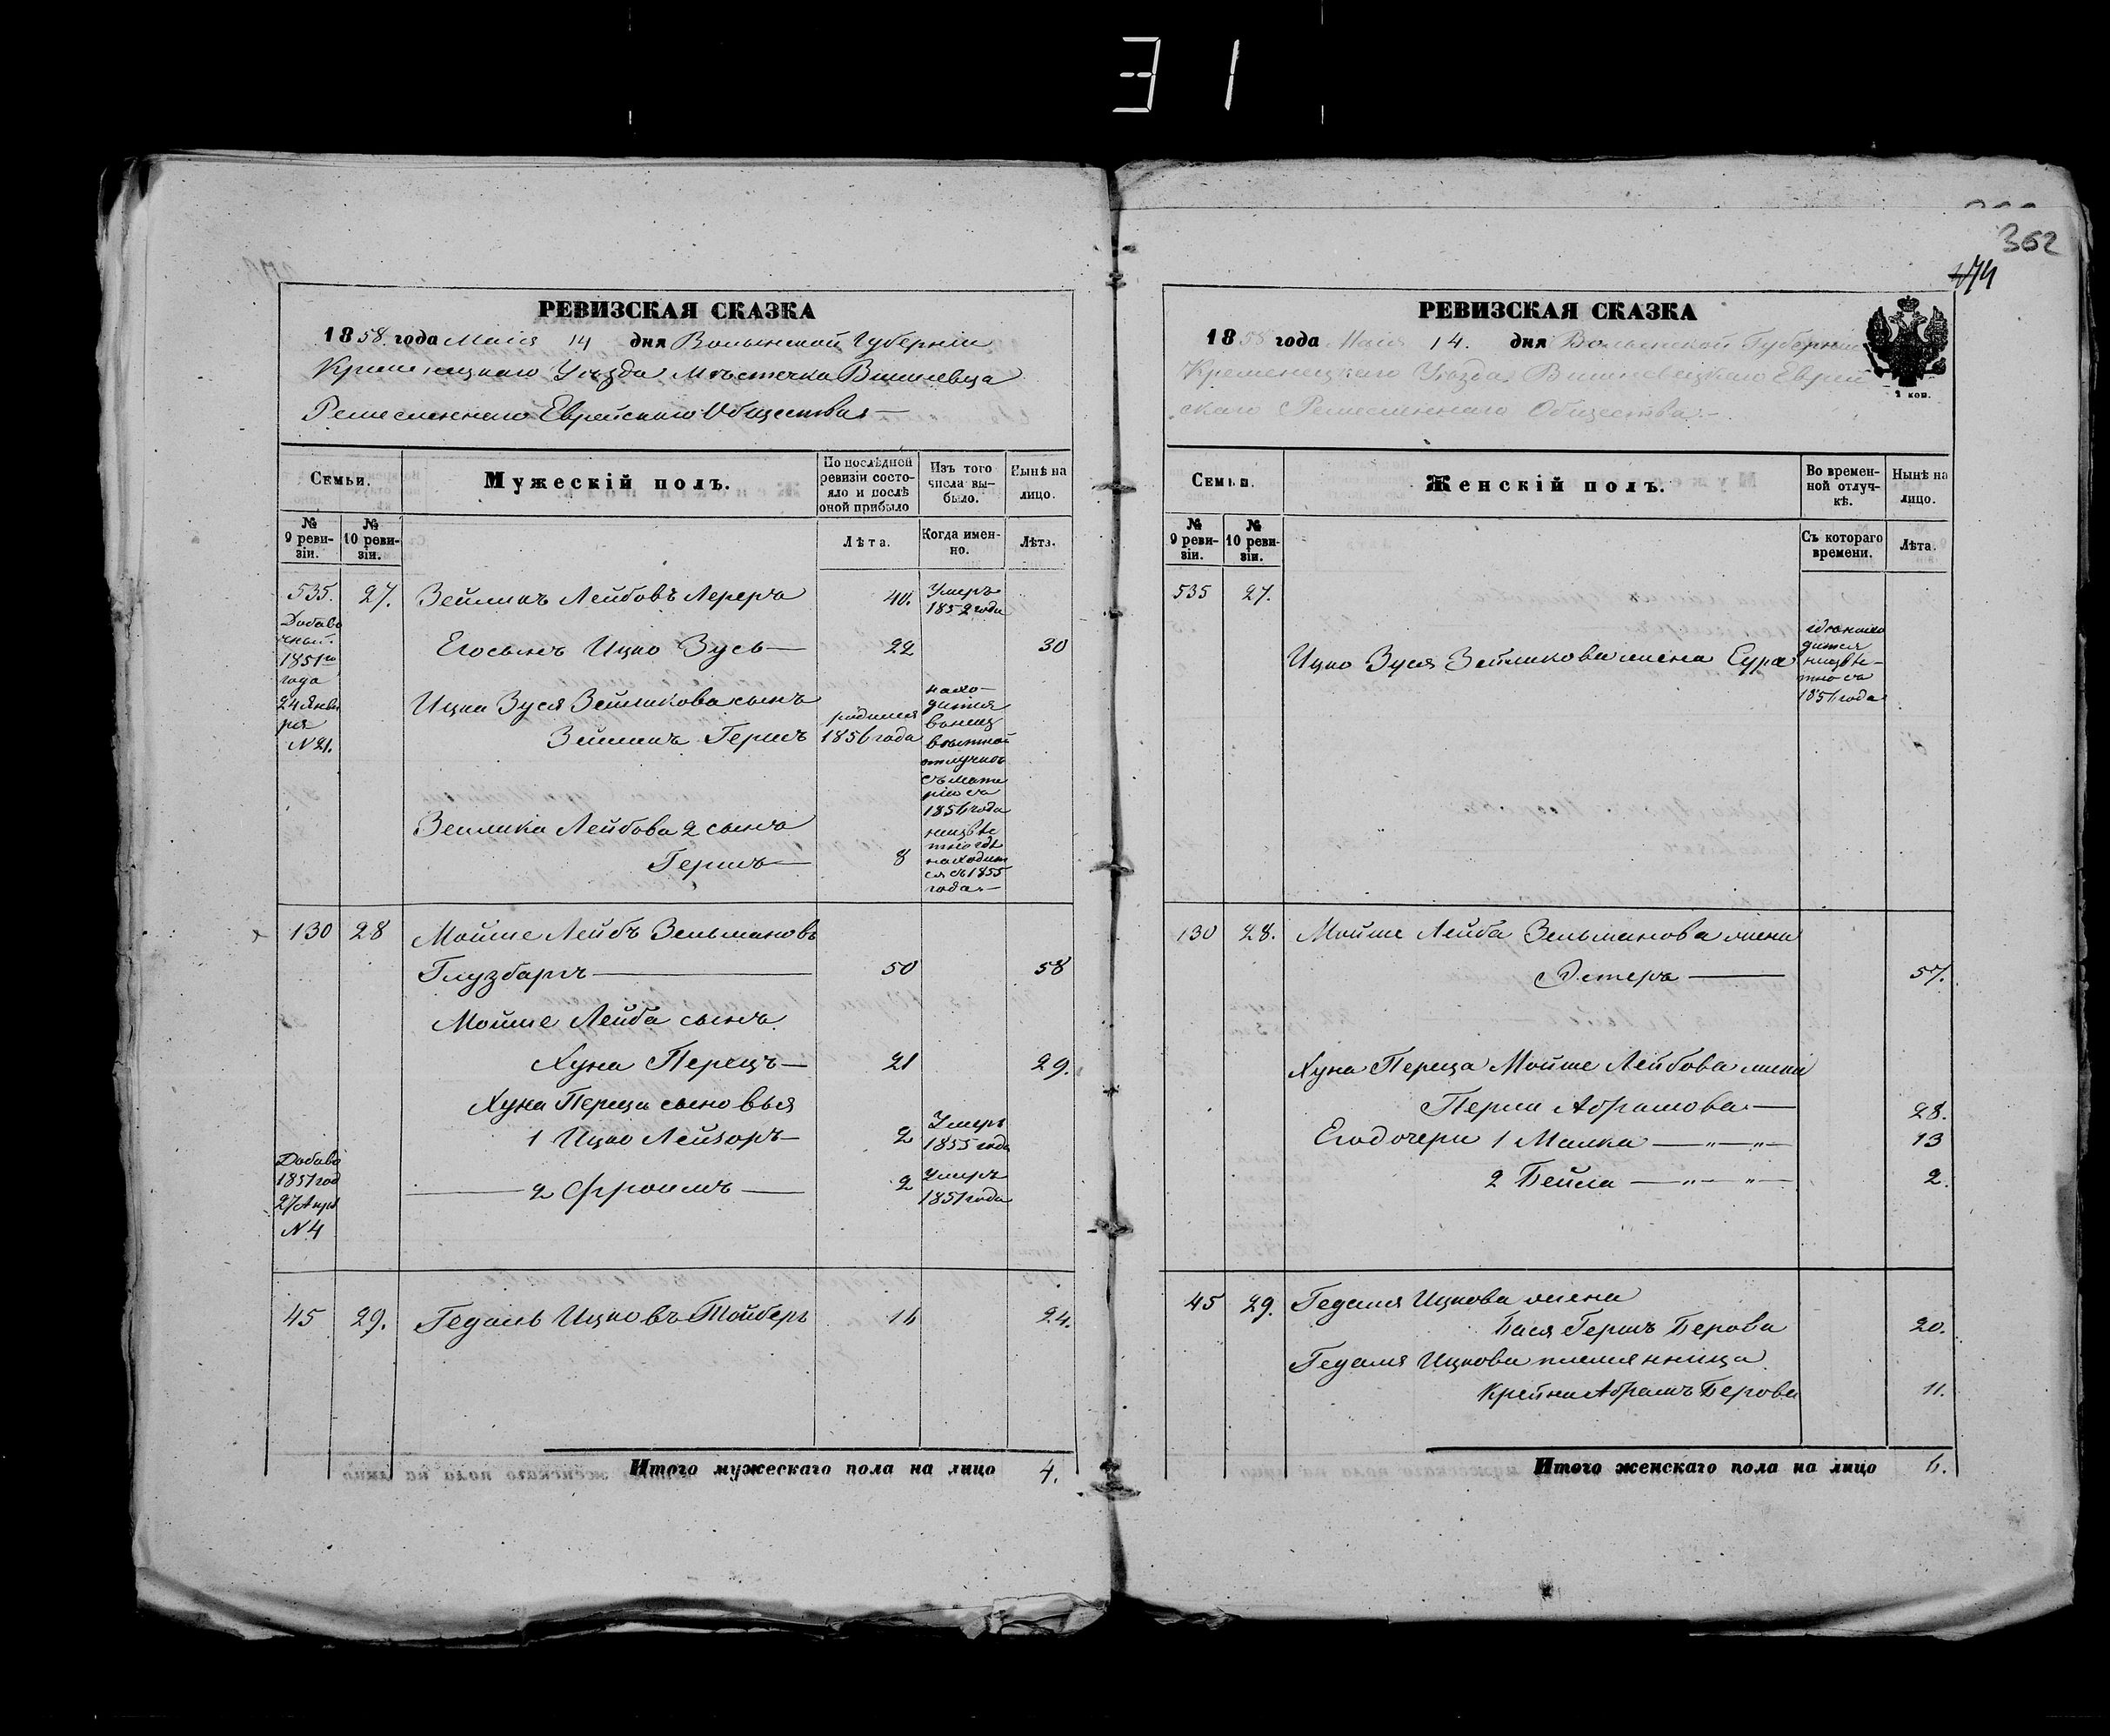 31
362
474
РЕВИЗСКАЯ СКАЗКА
1858 года Маія 14 дня Волынской Губерніи
Кременецкаго Уѣзда Мѣстечка Вишневца
Ремесленнаго Еврейскаго Общества
Семьи.
Мужескій полъ.
По послѣдней ревизіи состояло и послѣ оной прибыло
Изъ того числа выбыло.
Нынѣ на лицо.
№ 9 ревизіи.
№ 10 ревизіи.
Лѣта.
Когда именно.
Лѣта.
535. 27. Зейликъ Лейбовъ Лереръ 40. Умеръ 1852 года
Добавочный 1851го года 24 Января N 21.
Его сынъ Ицко Зусь 22 30
Ицка Зуся Зейликова сынъ
Зейликъ Гершъ родился 1856 года
находится въ неизвѣстной отлучкѣ съ матерію съ 1856 года
Зейлика Лейбова 2 сынъ
Гершъ 8 неизвѣстно гдѣ находится съ 1855 года
130 28 Мойше Лейбъ Зельмановъ
Глузбаръ 50 58
Мойше Лейба сынъ
Хуна Перецъ 21 29.
Хуна Переца сыновья
1 Ицко Лейзоръ 2 Умеръ 1855 года
Добаво 1851 год 27 Апрл N 4
2 Фроимъ 2 Умеръ 1851 года
45 29. Гедаль Ицковъ Тойберъ 16 24.
Итого мужескаго пола на лицо 4.
РЕВИЗСКАЯ СКАЗКА
1858 года Маія 14. дня Волынской Губерніи
Кременецкаго Уѣзда Вишневецкаго Еврей
скаго Ремесленнаго Общества
2 коп.
Семьи.
Женскій полъ.
Во временной отлучкѣ.
Нынѣ на лицо.
№ 9 ревизіи.
№ 10 ревизіи.
Съ котораго времени.
Лѣта.
535 27.
Ицко Зуся Зейликова жена Сура
гдѣ находится неизвѣстно съ 1856 года
130 28. Мойше Лейба Зельманова жена
Эстеръ 57.
Хуна Переца Мойше Лейбова жена
Перля Абрамова 28.
Его дочери 1 Малка 13
2 Бейла 2.
45 29. Гедаля Ицкова жена
Бася Гершъ Берова 20.
Гедаля Ицкова племянница
Крейна Абрамъ Берова 11.
Итого женскаго пола на лицо 6.